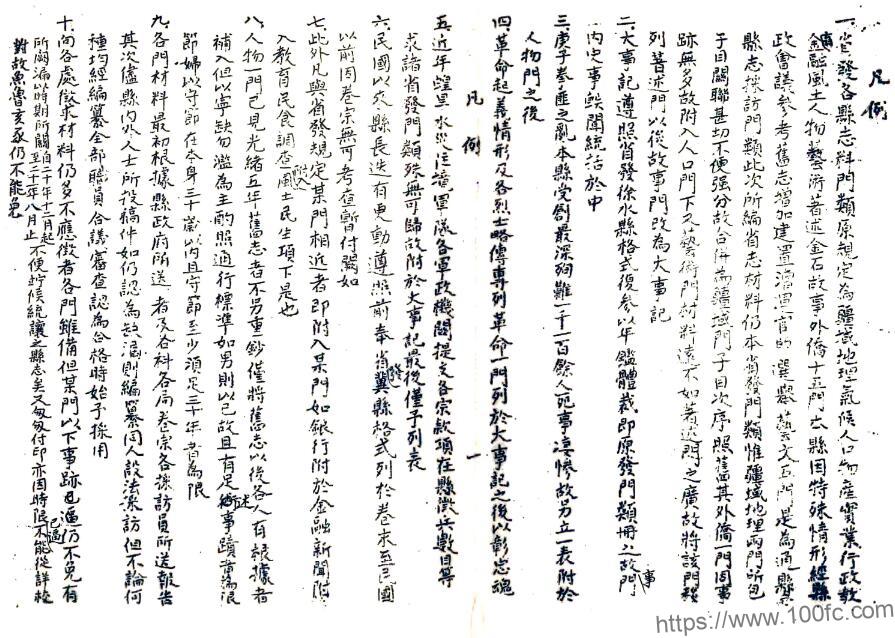 凡例
一、省發各縣志料門類原規定為疆域地理氣候人口物產實業行政教育
金融風土人物藝術著述金石故事外僑十五門本縣因特殊情形經縣
政會議參考舊志增加建置漕運官師選舉藝文五門是為通縣
縣志採訪門類此次所編省志材料仍本省發門類惟疆域地理兩門所包
子目關聯甚切不便強分故合併為疆域門子目次序照舊其外僑一門因事
跡無多故附入人口門下又藝術門材料遠不如著述門之廣故將該門移
列著述門以後故事門改為大事記
二、大事記遵照省發徐水縣格式復參以年鑑體裁即原發門類冊之故事門
內史事軼聞統括於中
三、庚子拳匪之亂本縣受創最深殉難一千一百餘人死事淒慘故另立一表附於
人物門之後
四、革命起義情形及各烈士略傳專列革命一門列於大事記之後以彰忠魂
凡例
一
五、近年蝗旱水災注境軍隊各軍政機關提支各宗款項在縣徵兵數目等
求諸省發門類殊無可歸故附於大事記最後僅予列表
六、民國以來縣長迭有更動遵照前奉省發冀縣格式列於卷末至民國
以前因卷宗無可考查暫付闕如
七、此外凡與省發規定某門相近者即附入某門如銀行附於金融新聞附
入教育民食調查附入風土民生項下是也
八、人物一門已見光緒五年舊志者不另重鈔僅將舊志以後各人有根據者
補入但以寧缺勿濫為主酌照通行標準如男則以已故且有足述事蹟者為限
節婦以守節在本身三十歲以內且守節至少須足三十年者為限
九、各門材料最初根據縣政府所送者及各科各局卷宗各採訪員所送報告
其次儘縣內外人士所投稿件如仍認為缺漏則編纂同人設法採訪但不論何
種均經編纂全部職員會議審查認為合格時始予採用
十、向各處徵求材料仍多不應徵者各門雖備但某門以下事跡仍不免有
所闕漏以時期所關自二十年十二月起至二十二年八月止不便久候統讓之縣志矣又匆匆付印亦因時限已過不能從詳校
對故魚魯亥豕仍不能免
https://www.100fc.com